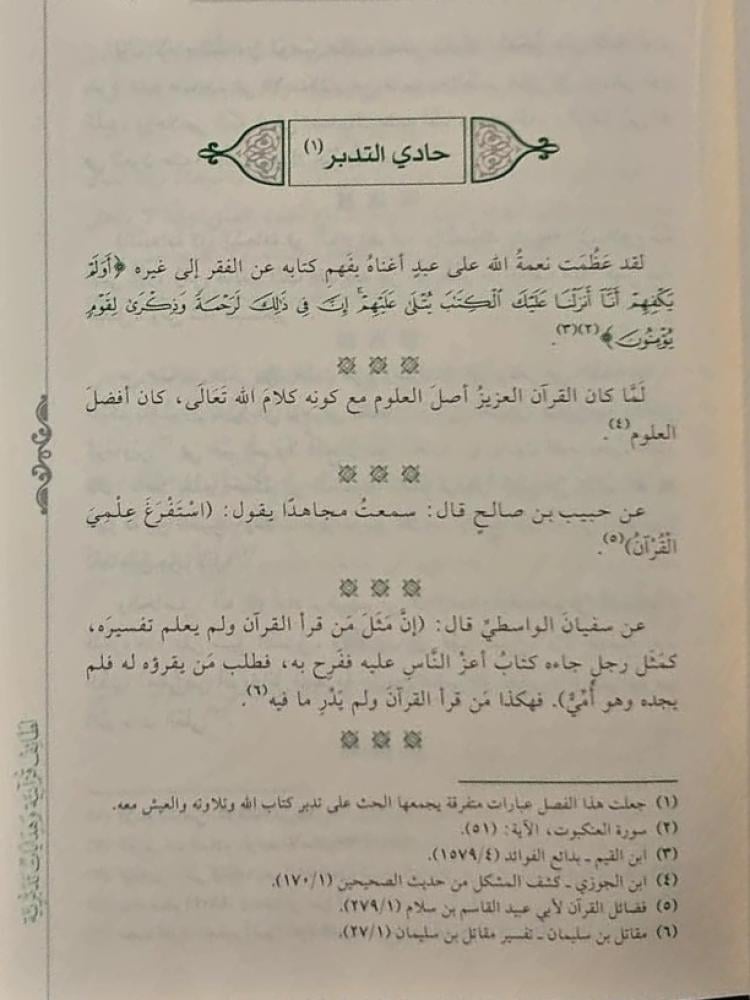 حادي التدبر(١)
لقد عَظُمَت نعمةُ الله على عبدٍ أغناهُ بفَهمِ كتابه عن الفقر إلى غيره ﴿أَوَلَمْ
يَكْفِهِمْ أَنَّآ أَنزَلْنَا عَلَيْكَ ٱلْكِتَٰبَ يُتْلَىٰ عَلَيْهِمْ ۚ إِنَّ فِى ذَٰلِكَ لَرَحْمَةً وَذِكْرَىٰ لِقَوْمٍ
يُؤْمِنُونَ﴾(٢)(٣).
لَمَّا كان القرآن العزيزُ أصلَ العلوم مع كونِه كلامَ الله تَعَالَى، كان أفضلَ
العلوم(٤).
عن حبيب بن صالحٍ قال: سمعتُ مجاهدًا يقول: (اسْتَفْرَغَ عِلْمِيَ
الْقُرْآنُ)(٥).
عن سفيانَ الواسطيِّ قال: (إنَّ مَثَلَ مَن قرأ القرآن ولم يعلم تفسيرَه،
كمَثَل رجلٍ جاءه كتابُ أعزْ النَّاسِ عليه ففَرِح به، فطلب مَن يقرؤه له فلم
يجده وهو أُمِّيٌّ). فهكذا مَن قرأ القرآنَ ولم يَدْرِ ما فيه(٦).
(١) جعلت هذا الفصل عبارات متفرقة يجمعها الحث على تدبر كتاب الله وتلاوته والعيش معه.
(٢) سورة العنكبوت، الآية: (٥١).
(٣) ابن القيم ـ بدائع الفوائد (١٥٧٩/٤).
(٤) ابن الجوزي ـ كشف المشكل من حديث الصحيحين (١٧٠/١).
(٥) فضائل القرآن لأبي عبيد القاسم بن سلام (٢٧٩/١).
(٦) مقاتل بن سليمان ـ تفسير مقاتل بن سليمان (٢٧/١).
لطائف قرآنية وهدايات تدبرية